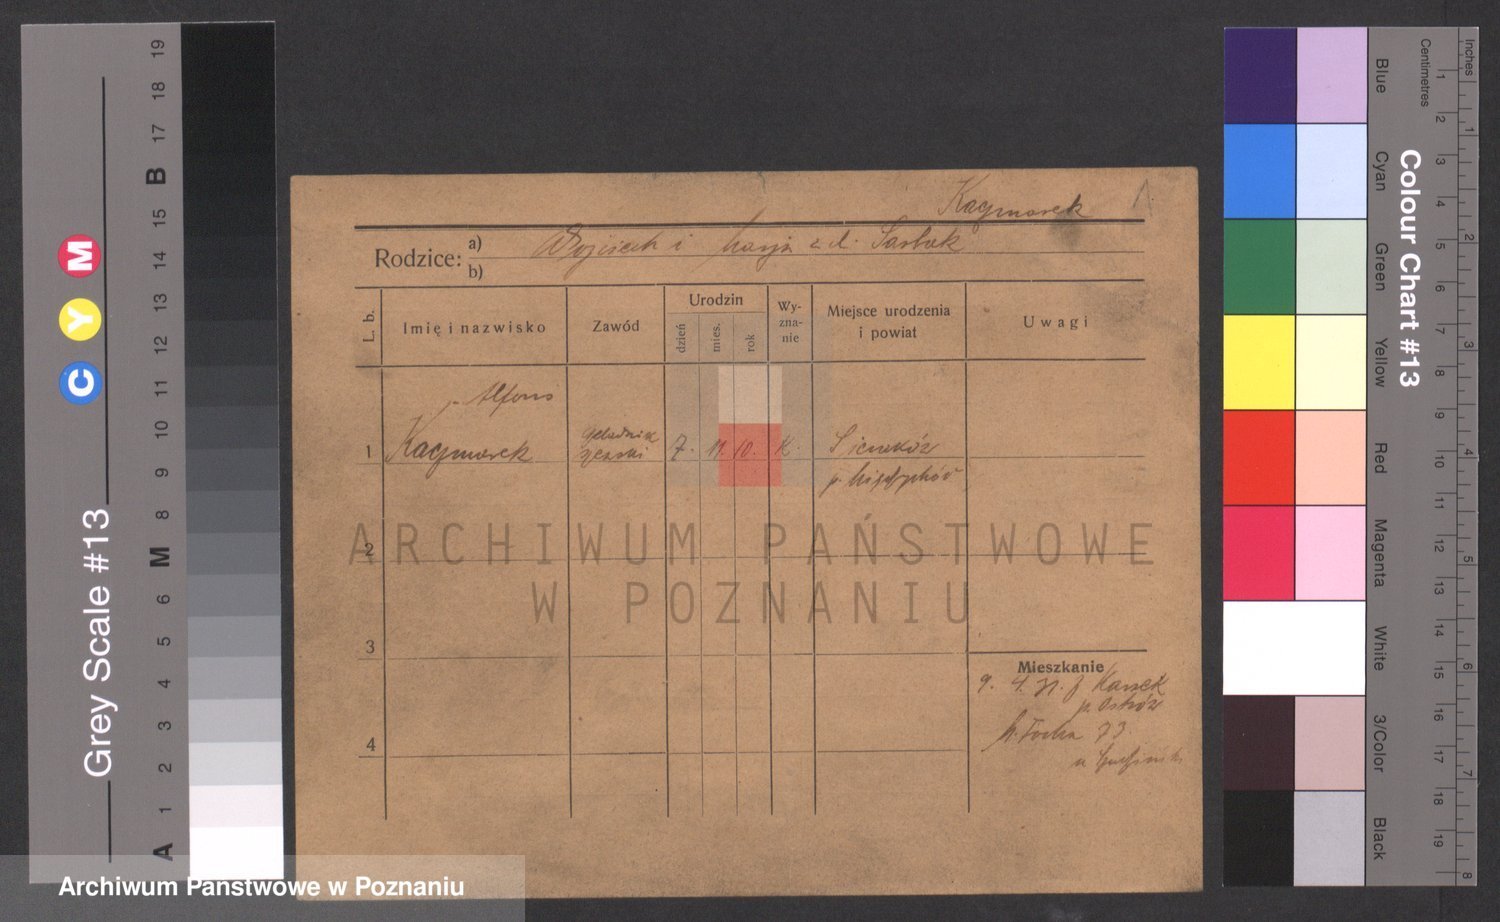 Kaczmarek 1
Rodzice: a) Wojciech i Marja z d. Sarbak
b)
L. b.
Imię i nazwisko
Zawód
Urodzin
dzień
mies.
rok
Wy-
zna-
nie
Miejsce urodzenia
i powiat
Uwagi
Alfons
1 Kaczmarek
czeladnik
7. 11. 10. K.
p.
2
3
4
Mieszkanie
9. 4. 31. z
p. Ostrów
M. Focha 73
u
ARCHIWUM PAŃSTWOWE
W POZNANIU
Archiwum Panstwowe w Poznaniu
Grey Scale #13
C Y M
A 1 2 3 4 5 6 M 8 9 10 11 12 13 14 15 B 17 18 19
Colour Chart #13
Blue
Cyan
Green
Yellow
Red
Magenta
White
3/Color
Black
Centimetres
1 2 3 4 5 6 7 8 9 10 11 12 13 14 15 16 17 18 19
Inches
1 2 3 4 5 6 7 8